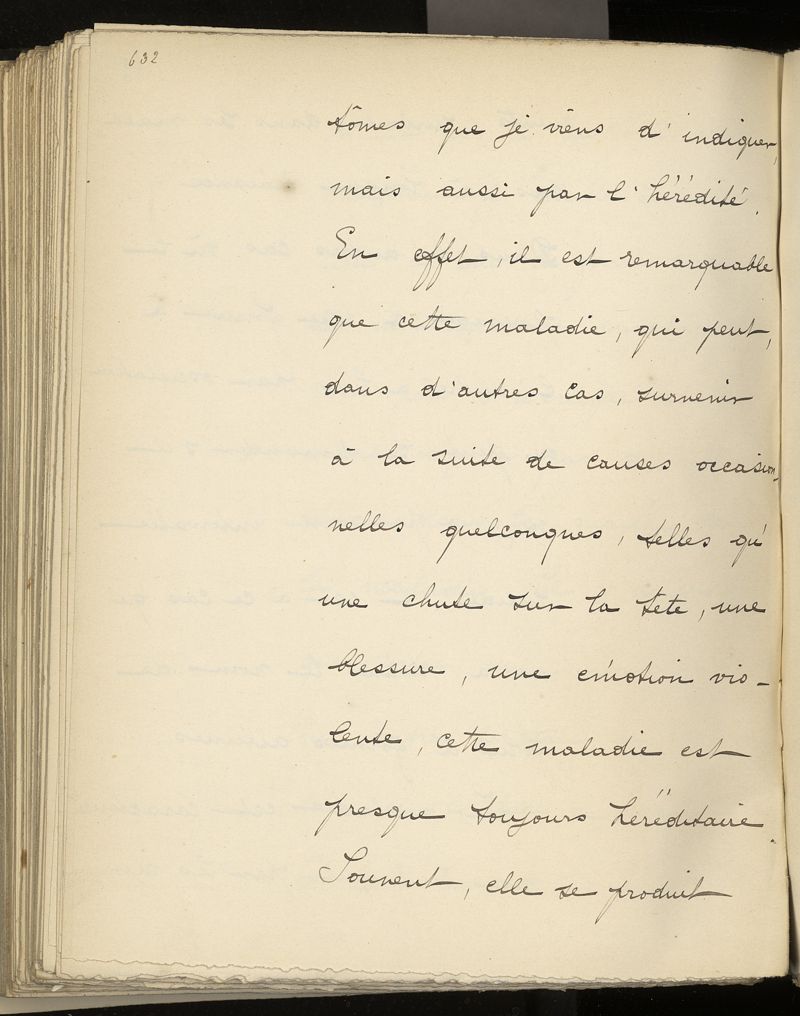 632
tômes que je viens d'indiquer,
mais aussi par l'hérédité.
En effet, il est remarquable
que cette maladie, qui peut,
dans d'autres cas, survenir
à la suite de causes occasion-
nelles quelconques, telles qu'
une chute sur la tête, une
blessure, une émotion vio-
lente, cette maladie est
presque toujours héréditaire.
Souvent, elle se produit